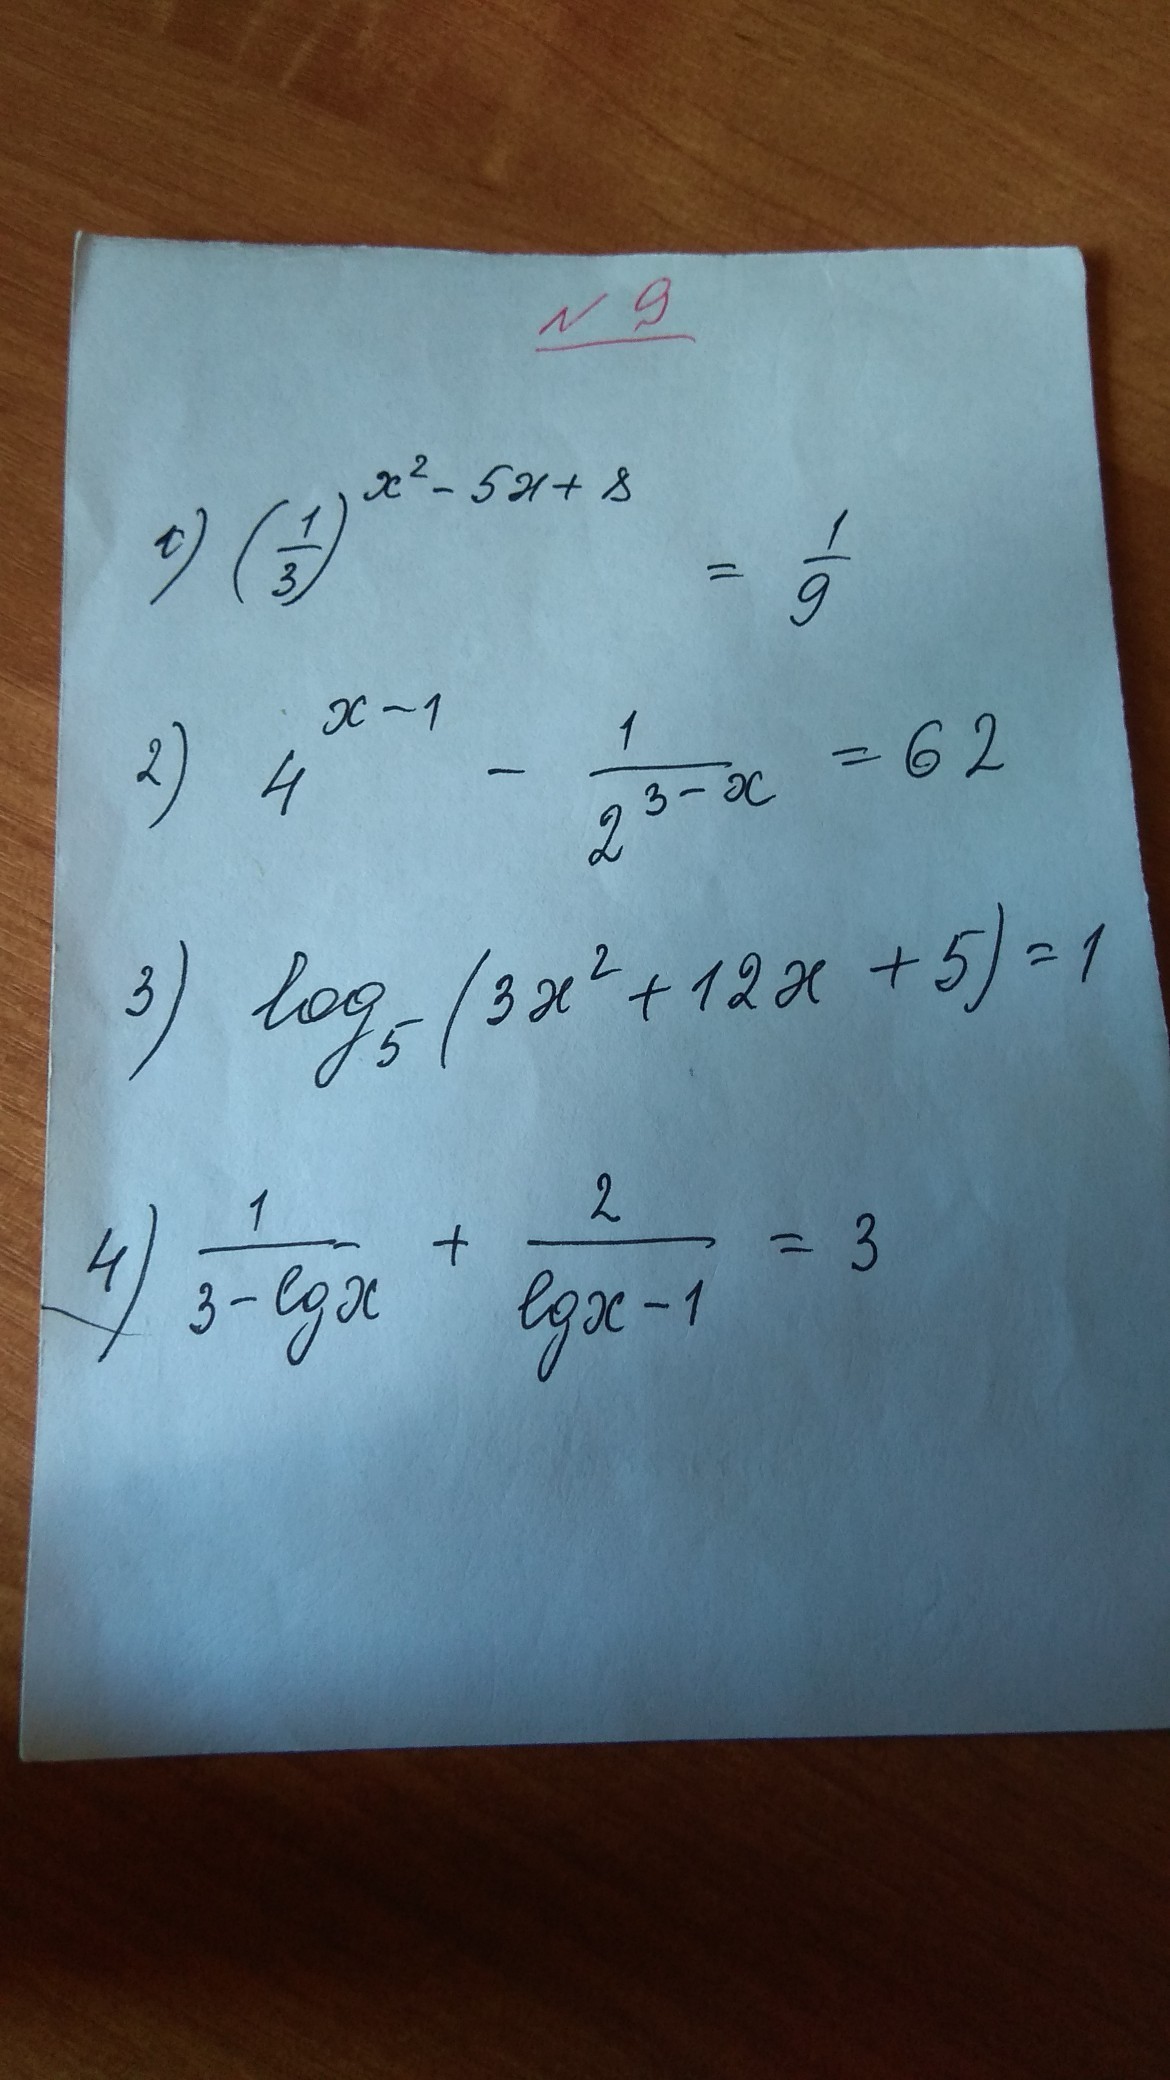 N 9
1) (1/3)^(x² - 5x + 8) = 1/9
2) 4^(x-1) - 1/2^(3-x) = 62
3) log₅(3x² + 12x + 5) = 1
4) 1/(3-lgx) + 2/(lgx-1) = 3